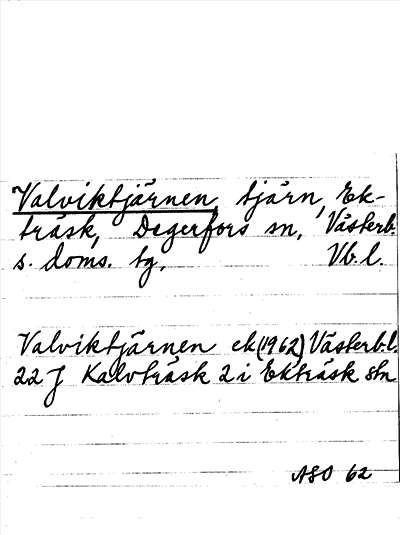 Valviktjärnen, tjärn, Ek-
träsk, Degerfors sn, Västerb.
s. doms. tg, Vb. l.
Valviktjärnen ek (1962) Västerb.l.
22 J Kalvträsk 2 i Ekträsk sbn
ASO 62